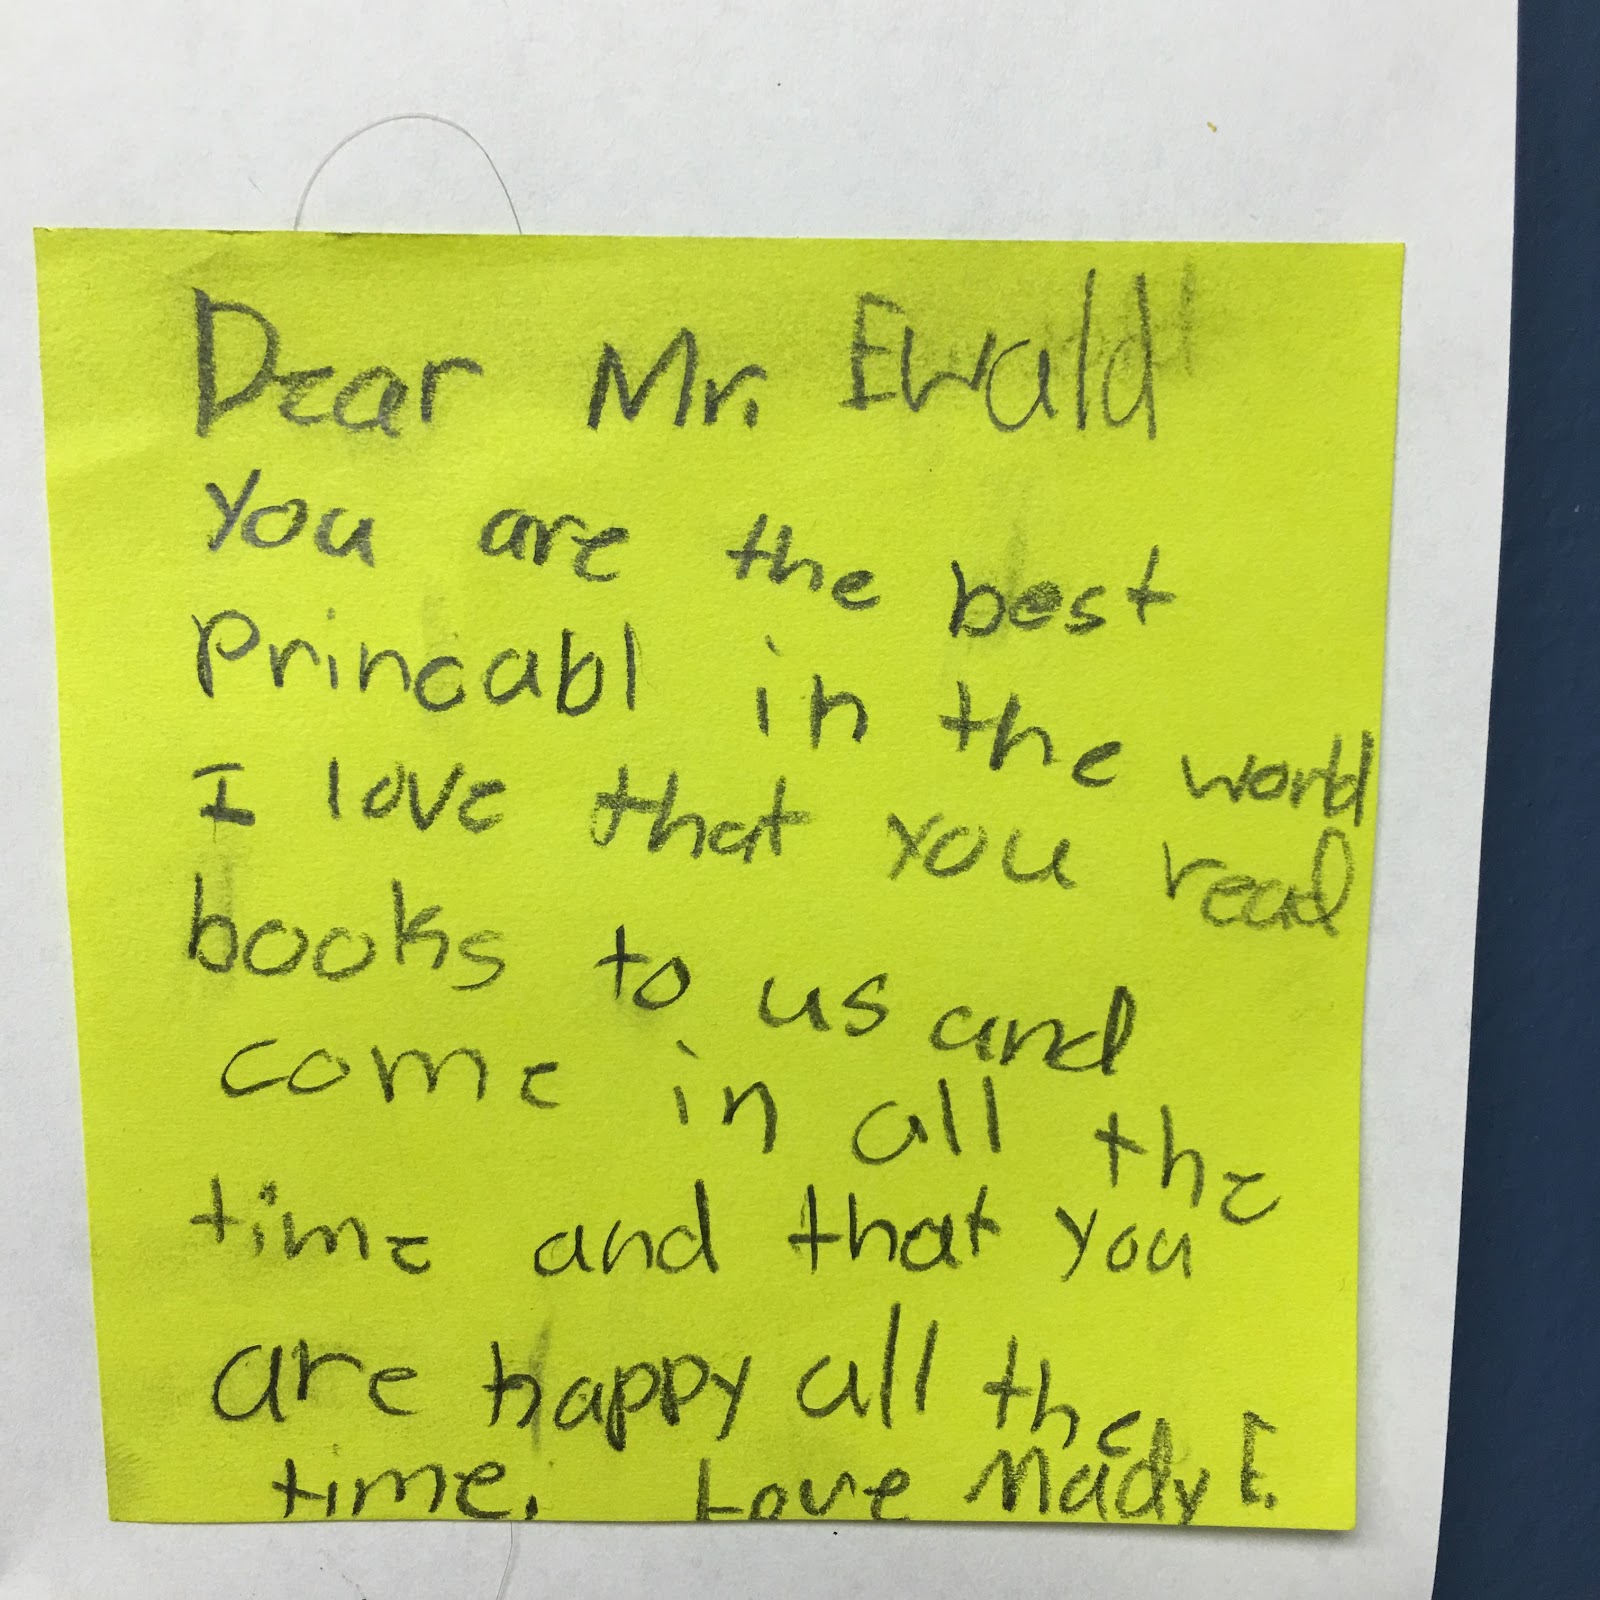 Dear Mr. Ewald
You are the best
Princabl in the world
I love that you read
books to us and
come in all the
time and that you
are happy all the
time. Love Mady E.